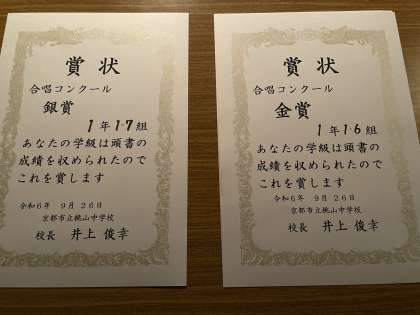 賞状
合唱コンクール
銀賞
1年1・7組
あなたの学級は頭書の
成績を収められたので
これを賞します
令和6年 9月26日
京都市立桃山中学校
校長 井上 俊幸
賞状
合唱コンクール
金賞
1年1・6組
あなたの学級は頭書の
成績を収められたので
これを賞します
令和6年 9月26日
京都市立桃山中学校
校長 井上 俊幸